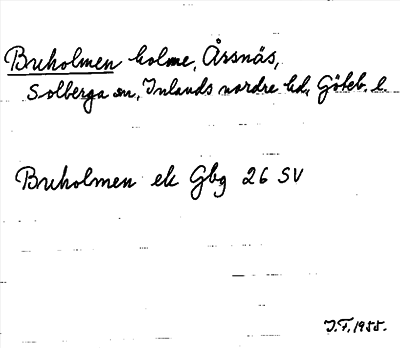 Buholmen holme, Årsnäs,
Solberga sn, Inlands nordre hd, Göteb. l.
Buholmen ek Gbg 26 SV
J.F. 1955.